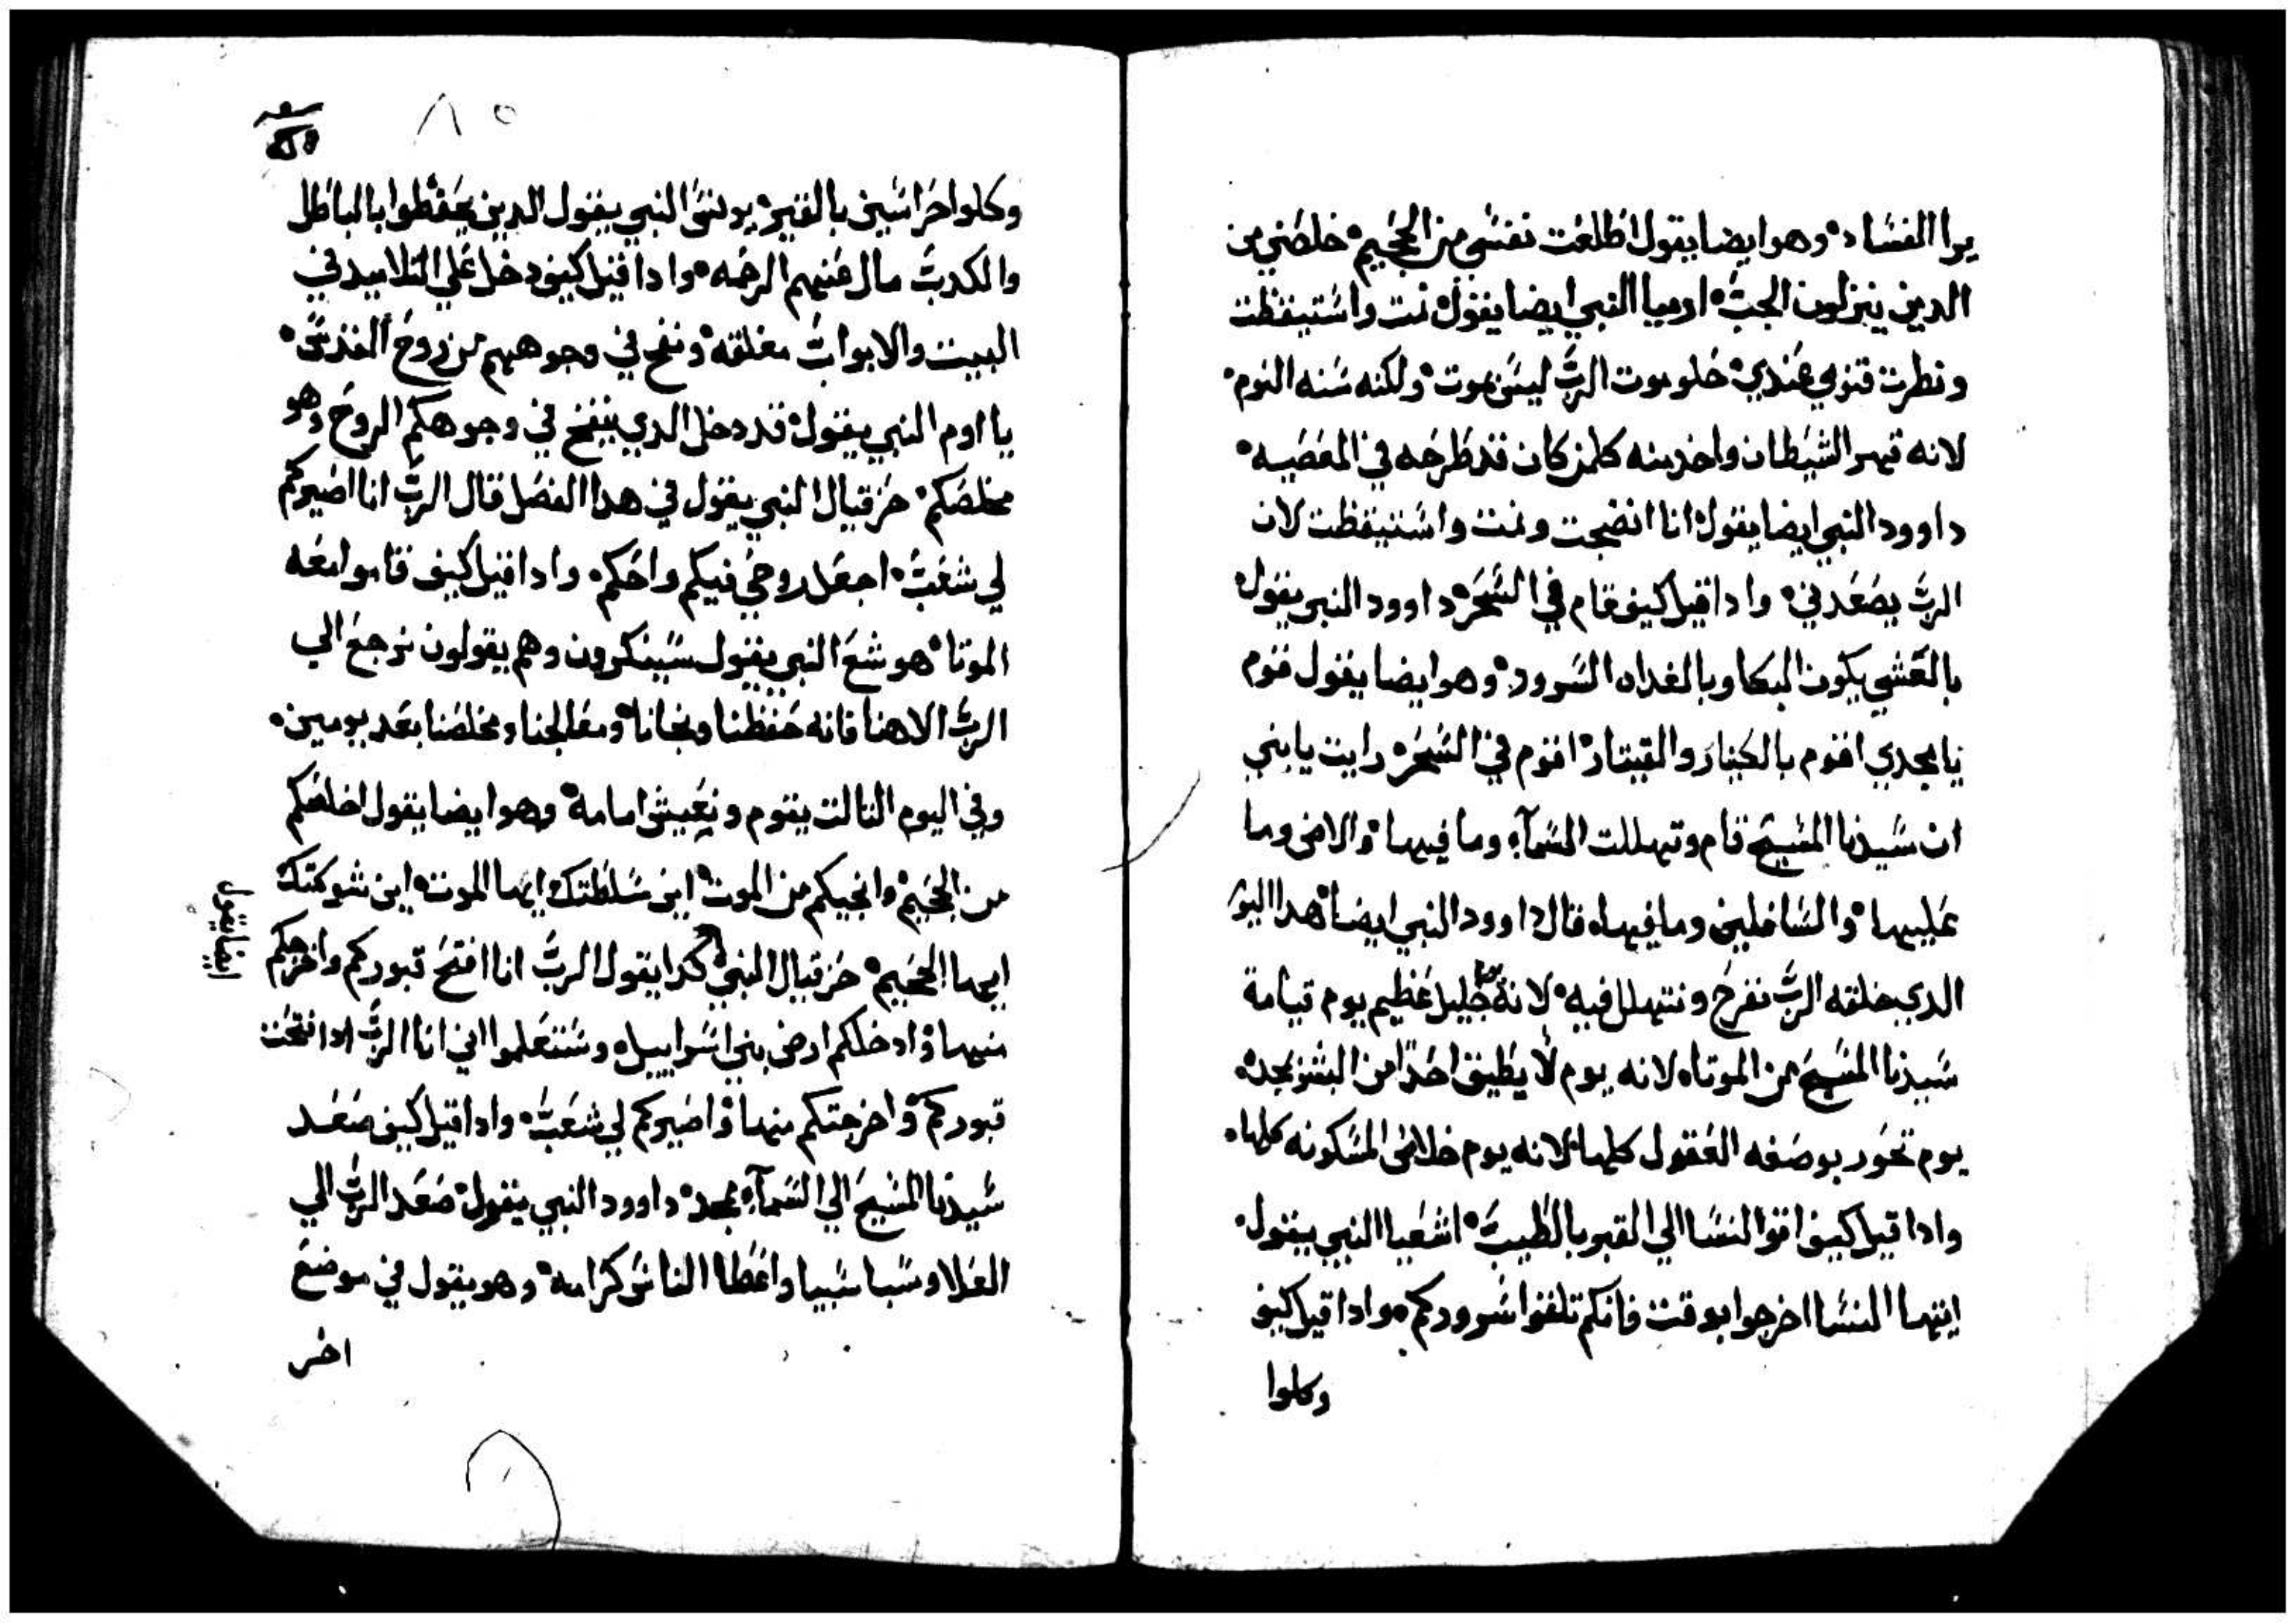 يرا الفساد وهو ايضا يقول اطلعت نفسي من الجحيم خلصني من
الدين ينزلون الجب ارميا النبي ايضا يقول نمت واستيقظت
ونظرت قنومي عندي حلو موت الرب ليس بموت ولكنه سنه النوم
لانه قهر الشيطان واخد منه كلمن كان قد طرحه في المعصيه
داوود النبي ايضا يقول انا انضجعت ونمت واستيقظت لان
الرب يصعدني وادا قيل كيف قام في السحر داوود النبي يقول
بالعشي يكون البكا وبالغداه السرور وهو ايضا يقول قوم
يا مجدي اقوم بالكينار والقيتار اقوم في السحر رايت يا بني
ان سيدنا المسيح قام وتهللت السمآء وما فيها والارض وما
عليها والسافلين وما فيها قال داوود النبي ايضا هدا اليوم
الدي خلقه الرب نفرح ونتهلل فيه لانه جليل عظيم يوم قيامة
سيدنا المسيح من الموتا لانه يوم لا يطيق احدا من البشر بحده
يوم تخور بوصفه العقول كلها لانه يوم خلاص المسكونه كلها
وادا قيل كيف اتوا النسا الي القبر بالطيب اشعيا النبي يقول
ايتها النسا اخرجوا بوقت فانكم تلقوا سروركم وادا قيل كيف
وكلوا
٨٥
وكلوا حراسين بالقبر يونس النبي يقول الدين يحفظوا بالباطل
والكدب مال عنهم الرحمه وادا قيل كيف دخل علي التلاميد في
البيت والابواب مغلقه ونفح في وجوههم من روح القدس
يااوم النبي يقول قد دخل الدي ينفخ في وجوهكم الروح وهو
مخلصكم حزقيال النبي يقول في هدا الفصل قال الرب انا اصيركم
لي شعب اجعل روحي فيكم واحكم وادا قيل كيف قاموا معه
الموتا هوشع النبي يقول سيبكرون وهم يقولون نرجع الي
الرب الاهنا فانه حفظنا ونجانا ومعالجنا ومخلصنا بعد يومين
وفي اليوم التالت يقوم ونعيش امامه وهو ايضا يقول اخلصكم
من الجحيم وانجيكم من الموت اين سلطتك ايها الموت اين شوكتك
ايها الجحيم حزقيال النبي كدا يقول الرب انا افتح قبوركم واخرجكم
ايضا يقول
منها وادخلكم ارض بني اسراييل وستعلموا اني انا الرب ادا فتحت
قبوركم واخرجتكم منها واصيركم لي شعب وادا قيل كيف صعد
سيدنا المسيح الي السمآء بمجد داوود النبي يقول صعد الرب الي
العلا وسبا سبيا واعطا الناس كرامه وهو يقول في موضع
اخر